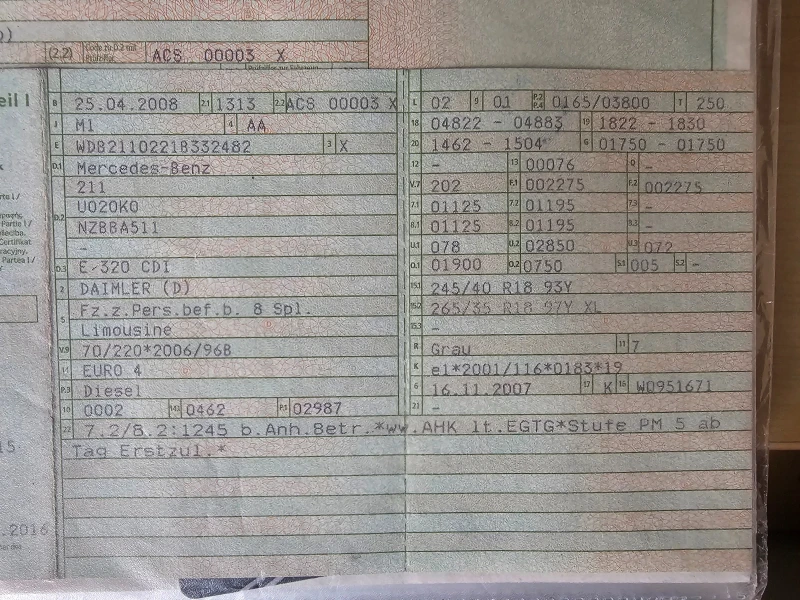 )
(2.2) Code zu D.2 mit Prüfziffer ACS 00003 X
eil I
B 25.04.2008 2.1 1313 2.2 ACS 00003 X L 02 9 01 P.2 P.4 0165/03800 T 250
J M1 4 AA 18 04822 - 04883 19 1822 - 1830
E WDB2110221B332482 3 X 20 1462 - 1504 G 01750 - 01750
D.1 Mercedes-Benz 12 - 13 00076 Q -
211 V.7 202 F.1 002275 F.2 002275
D.2 U020K0 7.1 01125 7.2 01195 7.3 -
NZBBA511 8.1 01125 8.2 01195 8.3 -
- U.1 078 U.2 02850 U.3 072
D.3 E-320 CDI O.1 01900 O.2 0750 S.1 005 S.2 -
2 DAIMLER (D) 15.1 245/40 R18 93Y
5 Fz.z.Pers.bef.b. 8 Spl. 15.2 265/35 R18 97Y XL
Limousine 15.3 -
V.9 70/220*2006/96B R Grau 11 7
14 EURO 4 K e1*2001/116*0183*19
P.3 Diesel 6 16.11.2007 17 K 16 W0951671
10 0002 14.1 0462 P.1 02987 21 -
22 7.2/8.2:1245 b.Anh.Betr.*ww.AHK lt.EGTG*Stufe PM 5 ab
Tag Erstzul.*
.2016